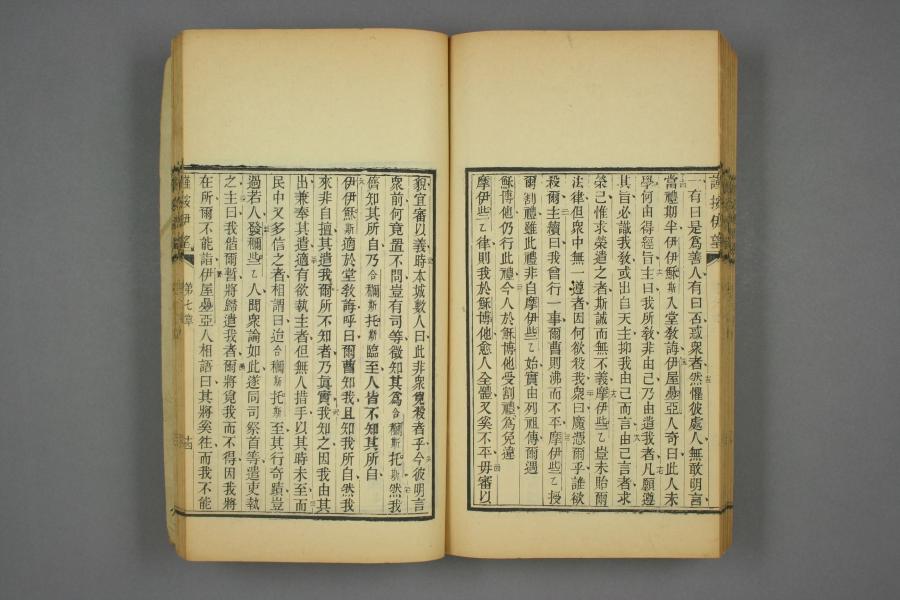 一有曰是爲善人有曰否或衆者然懼彼處人無敢明言
當禮期半伊伊穌斯入堂敎誨伊屋疊亞人奇曰此人未
學何由得經旨主曰我所敎非由己乃由遣我者凡願遵
其旨必識我敎或出自天主抑我由己而言由己言者求
榮己惟求榮遣之者斯誠而無不義摩伊些乙豈未貽爾
法律但衆中無一遵者因何欲殺我衆曰魔憑爾乎誰欲
殺爾主續曰我曾行一事爾曹則沸而不平摩伊些乙授
爾割禮雖此禮非自摩伊些乙始實由列祖傳爾遇
穌博他仍行此禮今人於穌博他受割禮爲免違
摩伊些乙律則我於穌博他愈人全體又奚不平毋審以
貌宜審以義時本城數人曰此非衆覓殺者乎今彼明言
衆前何竟置不問豈有司等徵知其爲合稱斯托斯然我
儕知其所自乃合稱斯托斯臨至人皆不知其所自
伊伊穌斯適於堂敎誨呼曰爾曹知我且知我所自然我
來非自擅其遣我爾所不知者乃眞實我知之因我由其
出兼奉其遣適有欲執主者但無人措手以其時未至而
民中又多信之者相謂曰迨合稱斯托斯至其行奇蹟豈
過若人發稱些乙人聞衆論如此遂同司祭首等遣吏執
之主曰我偕爾暫將歸遣我者爾將覓我而不得因我將
在所爾不能詣伊屋疊亞人相語曰其將奚往而我不能
第七章